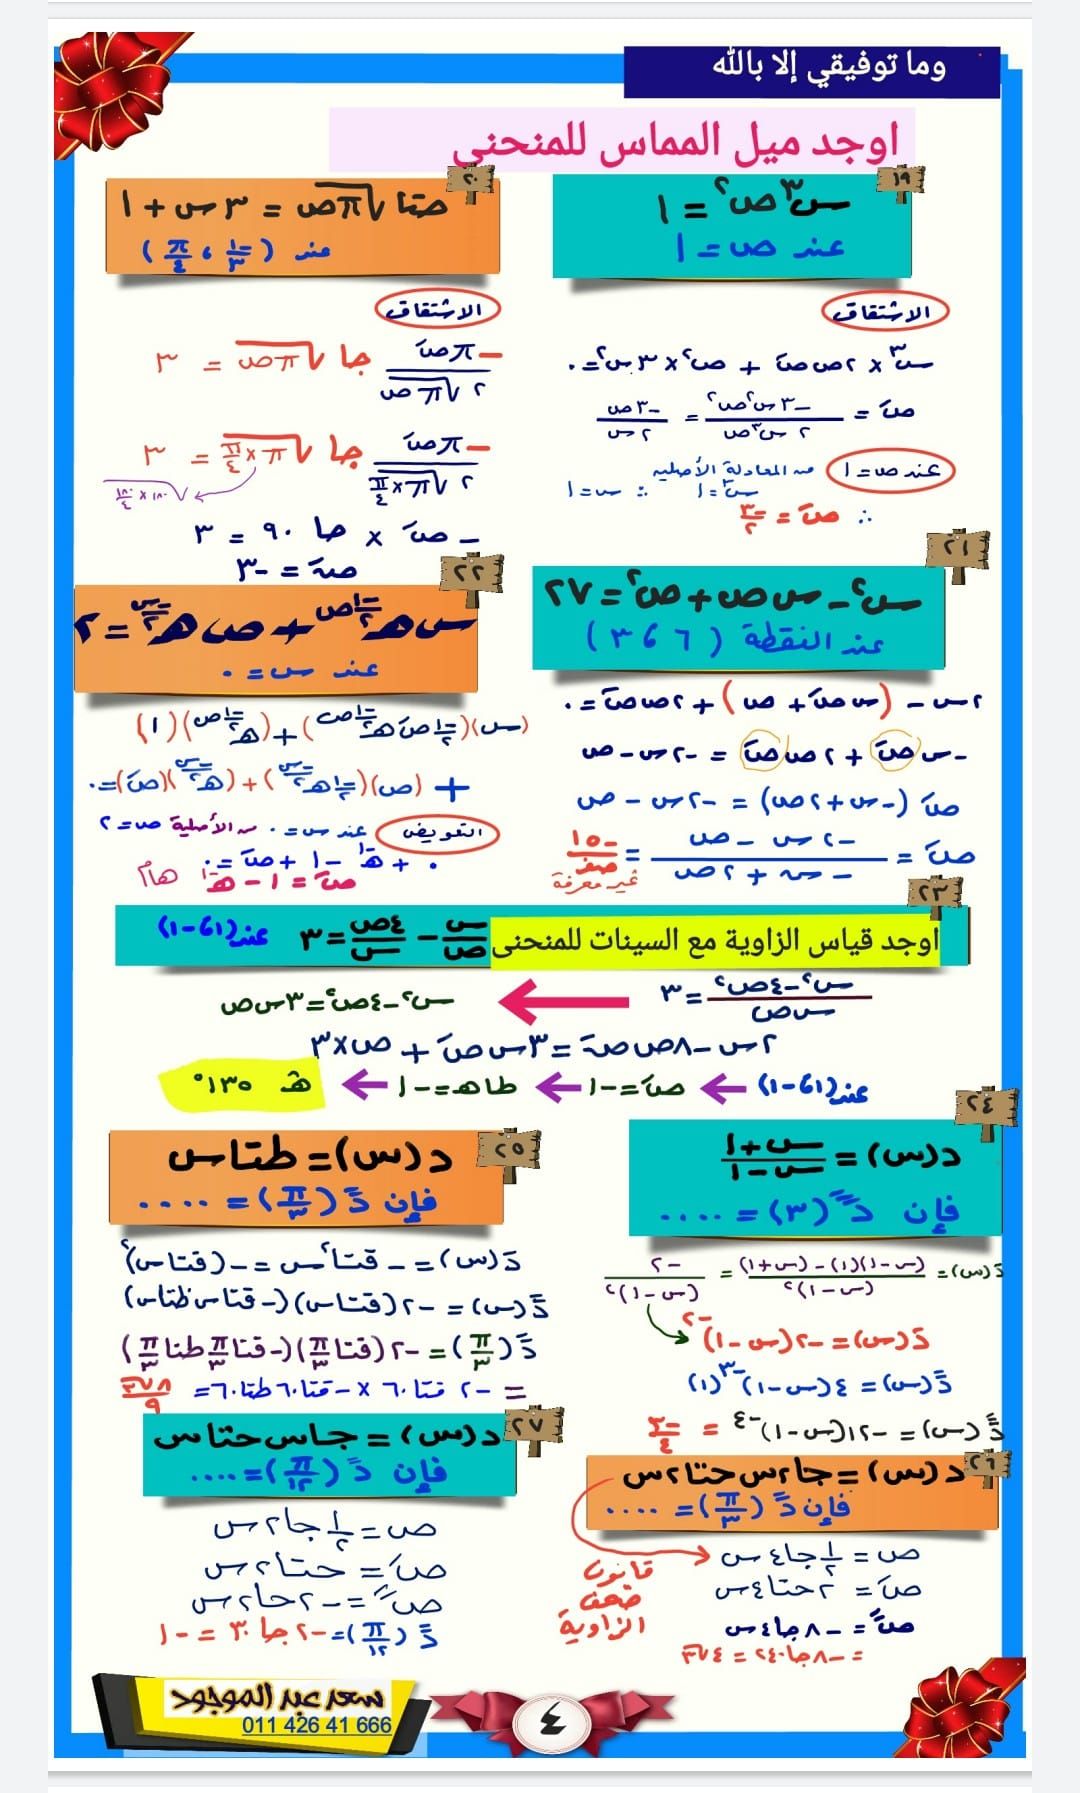 وما توفيقي إلا بالله
اوجد ميل المماس للمنحنى
١٩
س٣ ص٢ = ١
عند ص = ١
الاشتقاق
س٣ × ٢ص صَ + ص٢ × ٣س٢ = ٠
صَ = -٣س٢ص٢ / ٢س٣ص = -٣ص / ٢س
عند ص = ١ من المعادلة الأصلية
س٣ = ١ ∴ س = ١
∴ صَ = -٣/٢
٢٠
حتا √π ص = ٣س + ١
عند ( -١/٣ ، π/٤ )
الاشتقاق
-π صَ / ٢√π ص جا √π ص = ٣
-π صَ / ٢√π×π/٤ جا √π×π/٤ = ٣
√١٨٠ × ١٨٠/٤
- صَ × جا ٩٠ = ٣
صَ = -٣
٢١
س٢ - س ص + ص٢ = ٢٧
عند النقطة ( ٦ ، ٣ )
٢س - (س صَ + ص) + ٢ص صَ = ٠
-س صَ + ٢ص صَ = -٢س - ص
صَ (-س + ٢ص) = -٢س - ص
صَ = -٢س - ص / -س + ٢ص = -١٥ / صفر
غير معرفة
٢٢
س هـ ١/٢ ص + ص هـ -س/٢ = ٢
عند س = ٠
(س)(١/٢ صَ هـ ١/٢ ص) + (هـ ١/٢ ص)(١)
+ (ص)(-١/٢ هـ -س/٢) + (هـ -س/٢)(صَ) = ٠
التعويض عند س = ٠ من الأصلية ص = ٢
٠ + هـ١ - ١ + صَ = ٠
صَ = ١ - هـ١ هام
٢٣
اوجد قياس الزاوية مع السينات للمنحنى س/ص - ٤ص/س = ٣ عند (١،-١)
س٢ - ٤ص٢ / س ص = ٣ ← س٢ - ٤ص٢ = ٣س ص
٢س - ٨ص صَ = ٣س صَ + ص×٣
عند (١،-١) ← صَ = -١ ← طاهـ = -١ ← هـ ١٣٥°
٢٤
د(س) = س+١ / س-١
فإن دَََ (٣) = ....
دَ(س) = (س-١)(١) - (س+١) / (س-١)٢ = -٢ / (س-١)٢
دَ(س) = -٢(س-١)-٢
دََ(س) = ٤(س-١)-٣ (١)
دَََ(س) = -١٢(س-١)-٤ = -٣/٤
٢٥
د(س) = طتاس
فإن دََ (π/٣) = ....
دَ(س) = - قتا٢س = -(قتاس)٢
دََ(س) = -٢(قتاس)(-قتاس ظتاس)
دََ(π/٣) = -٢(قتا π/٣)(-قتا π/٣ طتا π/٣)
= -٢ قتا٦٠ × -قتا٦٠ طتا٦٠ = ٨√٣ / ٩
٢٦
د(س) = جا٢س حتا٢س
فإن دََ (π/٣) = ....
قانون
ضعف
الزاوية
ص = ١/٢ جا٤س
صَ = ٢ حتا٤س
صََ = -٨ جا٤س
= -٨ جا٢٤٠ = ٤√٣
٢٧
د(س) = جاس حتاس
فإن دََ (π/١٢) = ....
ص = ١/٢ جا٢س
صَ = حتا٢س
صََ = -٢ جا٢س
دََ (π/١٢) = -٢ جا ٣٠ = -١
سعد عبد الموجود
011 426 41 666
٤